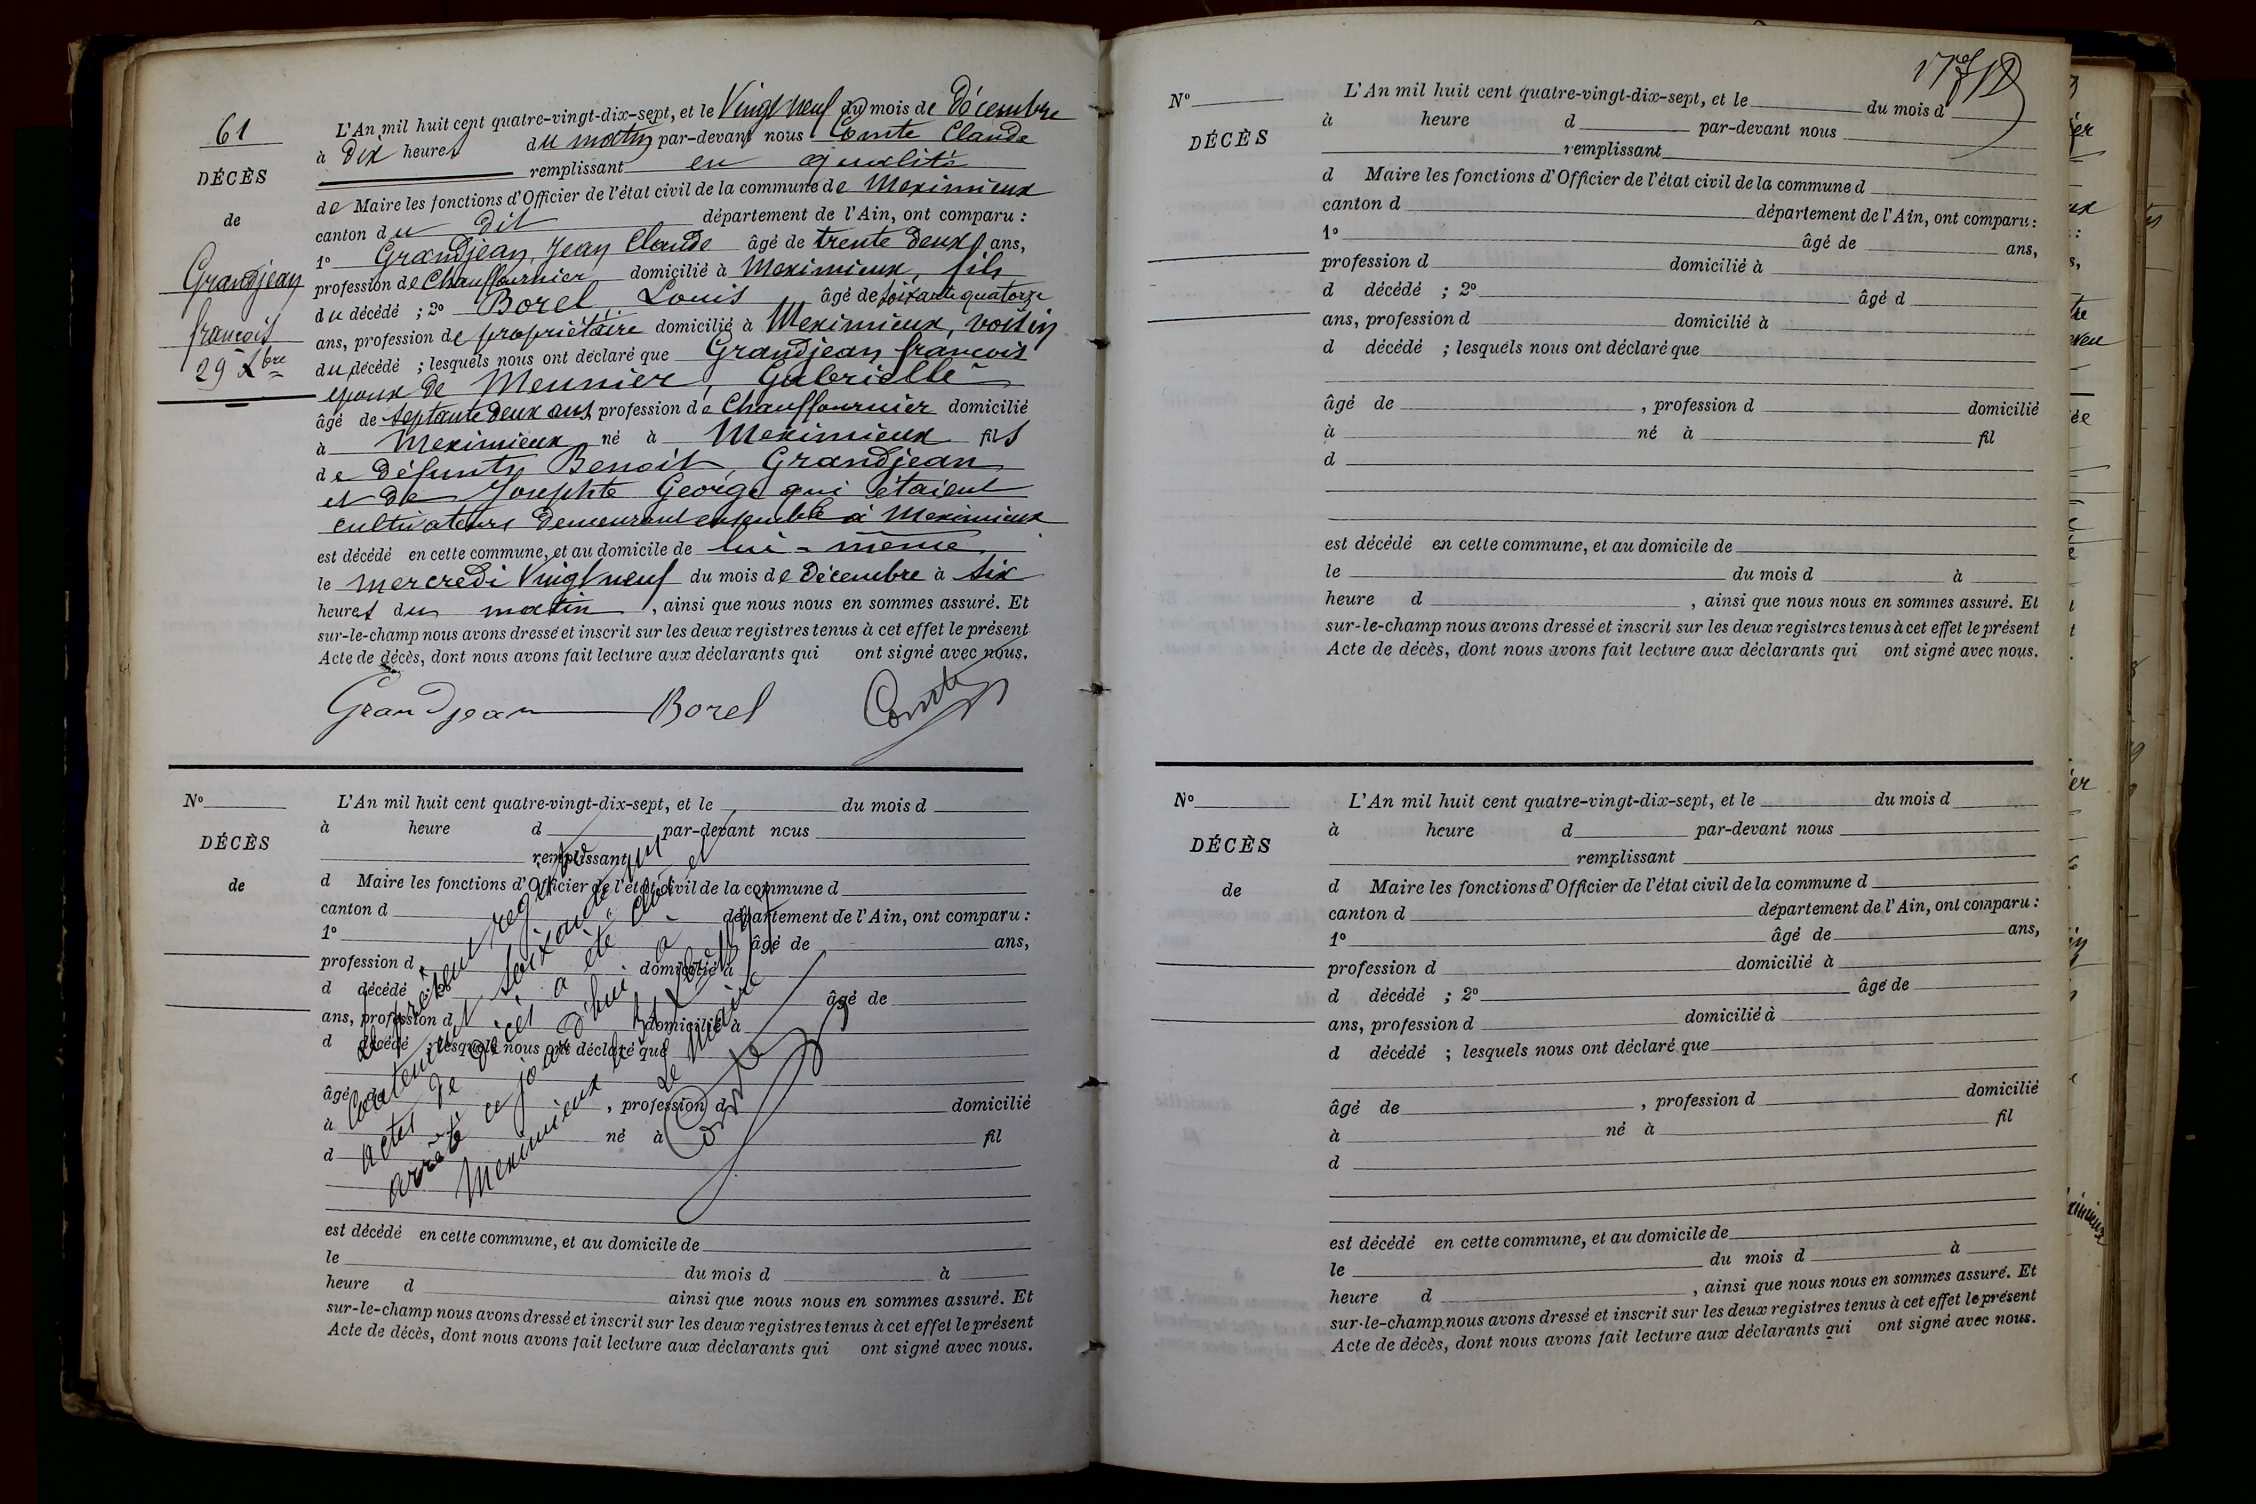 61
DÉCÈS
de
Grandjean
françois
29 Xbre
L'An mil huit cent quatre-vingt-dix-sept, et le Vingt neuf du mois de Décembre
à Dix heures du matin par-devant nous Comte Claude
remplissant en qualité
de Maire les fonctions d'Officier de l'état civil de la commune de Meximieux
canton du dit département de l'Ain, ont comparu :
1º Grandjean, Jean Claude âgé de trente deux ans,
profession de Chauffournier domicilié à Meximieux, fils
du décédé ; 2º Borel Louis âgé de soixante quatorze
ans, profession de propriétaire domicilié à Meximieux, voisin
du décédé ; lesquels nous ont déclaré que Grandjean françois
époux de Meunier, Gabrielle
âgé de septante deux ans, profession de Chauffournier domicilié
à Meximieux né à Meximieux fils
de défunts Benoit Grandjean
et de Josephte George qui étaient
cultivateurs demeurant ensemble à Meximieux
est décédé en cette commune, et au domicile de lui-même
le mercredi Vingt neuf du mois de Décembre à six
heures du matin, ainsi que nous nous en sommes assuré. Et
sur-le-champ nous avons dressé et inscrit sur les deux registres tenus à cet effet le présent
Acte de décès, dont nous avons fait lecture aux déclarants qui ont signé avec nous.
Grandjean Borel Comte
Nº
DÉCÈS
de
L'An mil huit cent quatre-vingt-dix-sept, et le du mois d
à heure d par-devant nous
remplissant
d Maire les fonctions d'Officier de l'état civil de la commune d
canton d département de l'Ain, ont comparu :
1º âgé de ans,
profession d domicilié à
d décédé ; 2º âgé de
ans, profession d domicilié à
d décédé ; lesquels nous ont déclaré que
âgé de , profession d domicilié
à né à fil
d
est décédé en cette commune, et au domicile de
le du mois d à
heure d ainsi que nous nous en sommes assuré. Et
sur-le-champ nous avons dressé et inscrit sur les deux registres tenus à cet effet le présent
Acte de décès, dont nous avons fait lecture aux déclarants qui ont signé avec nous.
Le présent registre
contenant soixante un
actes de décès a été clos et
arrêté ce jourd'hui à
Meximieux le 31 Xbre
Le Maire
Comte
Nº
DÉCÈS
L'An mil huit cent quatre-vingt-dix-sept, et le du mois d
à heure d par-devant nous
remplissant
d Maire les fonctions d'Officier de l'état civil de la commune d
canton d département de l'Ain, ont comparu :
1º âgé de ans,
profession d domicilié à
d décédé ; 2º âgé d
ans, profession d domicilié à
d décédé ; lesquels nous ont déclaré que
âgé de , profession d domicilié
à né à fil
d
est décédé en cette commune, et au domicile de
le du mois d à
heure d , ainsi que nous nous en sommes assuré. Et
sur-le-champ nous avons dressé et inscrit sur les deux registres tenus à cet effet le présent
Acte de décès, dont nous avons fait lecture aux déclarants qui ont signé avec nous.
Nº
DÉCÈS
de
L'An mil huit cent quatre-vingt-dix-sept, et le du mois d
à heure d par-devant nous
remplissant
d Maire les fonctions d'Officier de l'état civil de la commune d
canton d département de l'Ain, ont comparu :
1º âgé de ans,
profession d domicilié à
d décédé ; 2º âgé de
ans, profession d domicilié à
d décédé ; lesquels nous ont déclaré que
âgé de , profession d domicilié
à né à fil
d
est décédé en cette commune, et au domicile de
le du mois d à
heure d , ainsi que nous nous en sommes assuré. Et
sur-le-champ nous avons dressé et inscrit sur les deux registres tenus à cet effet le présent
Acte de décès, dont nous avons fait lecture aux déclarants qui ont signé avec nous.